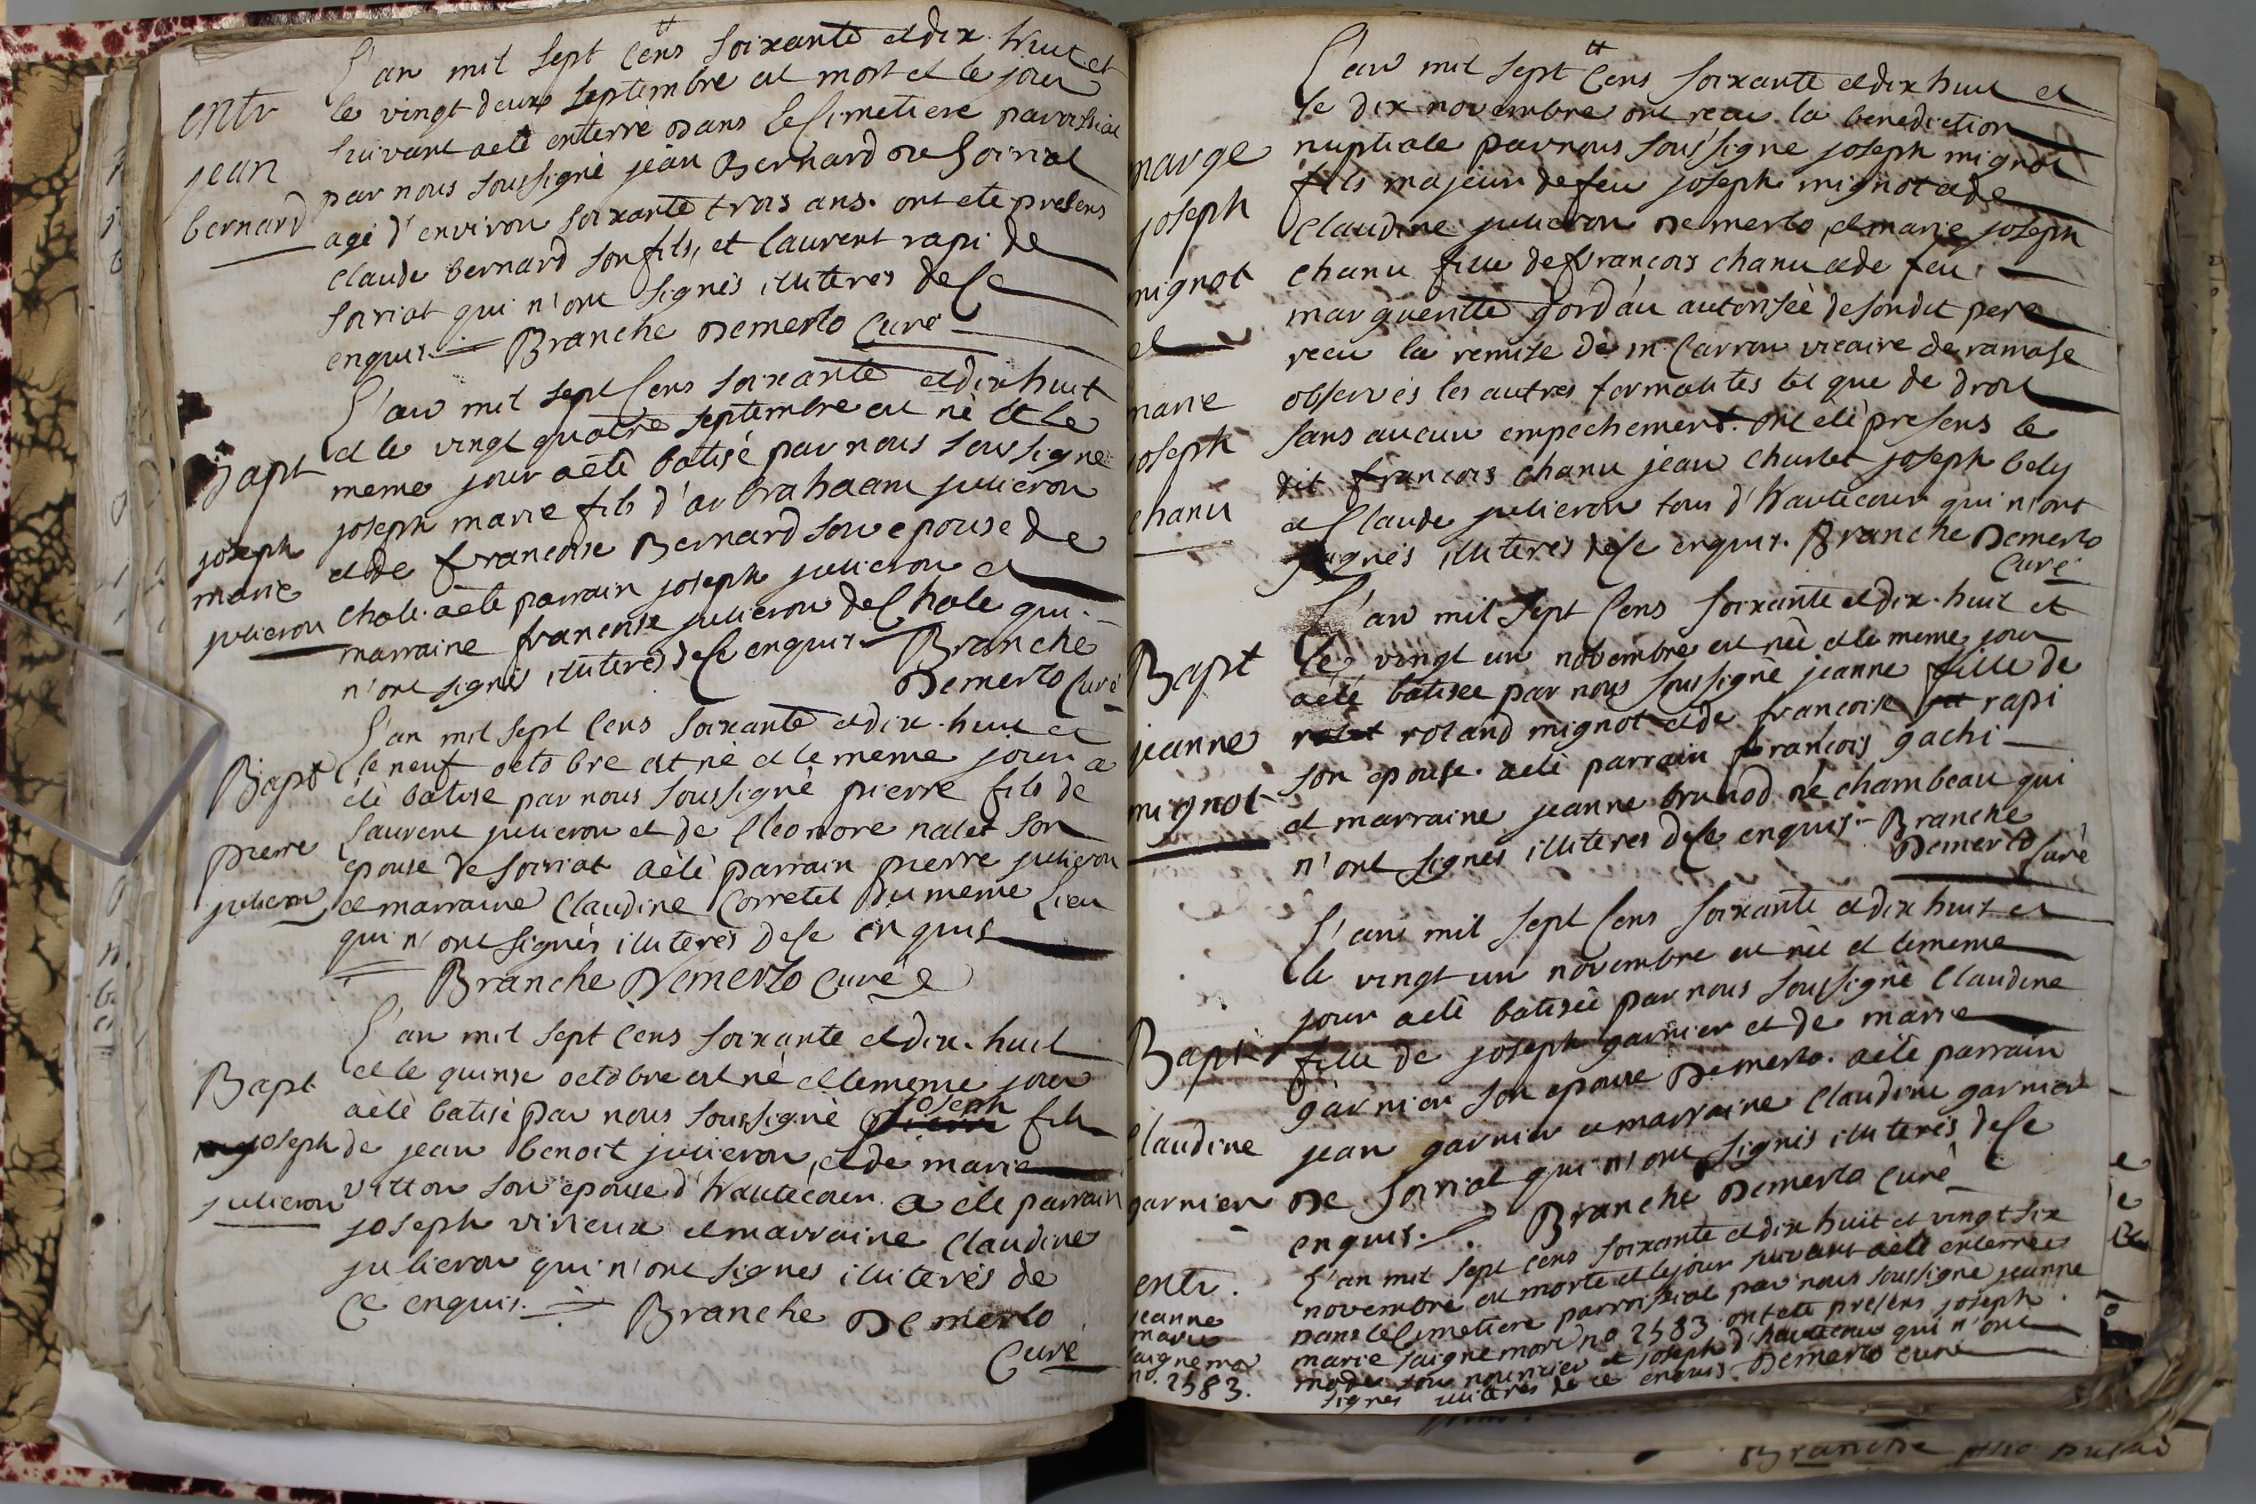 L'an mil sept Cens soixante et dix huit et
le vingt deux septembre est mort et le jour
suivant a eté enterré dans le Cimetiere paroissial
par nous soussigné jean Bernard de Soiriat
agé d'environ soixante trois ans. ont eté presens
claude bernard son fils, et laurent rapi de
soiriat qui n'ont signés illiterés de Ce
enquis. Branche Demerlo Curé
entr
jean
bernard
L'an mil sept Cens soixante et dix huit
et le vingt quatre septembre est né et le
meme jour a eté batisé par nous soussigné
joseph marie fils d'abrahaam julieron
et de francoise Bernard son epouse de
Chole. a eté parrain joseph julieron et
marraine francoise julieron de Chole qui
n'ont signés illiterés de Ce enquis Branche
Demerlo Curé
Bapt
joseph
marie
julieron
L'an mil sept Cens soixante et dix huit et
le neuf octobre est né et le meme jour a
eté batisé par nous soussigné pierre fils de
Laurent julieron et de Cleonore nalet son
epouse de soiriat a eté parrain pierre julieron
et marraine Claudine Corretel du meme Lieu
qui n'ont signés illiterés de Ce enquis
Branche Demerlo Curé
Bapt
pierre
julieron
L'an mil sept Cens soixante et dix huit
et le quinse octobre est né et le meme jour
a eté batisé par nous soussigné pierre joseph fils
de jean benoit julieron, et de marie
vitton son epouse d'hautecour a eté parrain
joseph vivieux et marraine Claudine
julieron qui n'ont signés illiterés de
Ce enquis. Branche Demerlo
Curé
Bapt
joseph
julieron
L'an mil sept Cens soixante et dix huit et
le dix novembre ont recu la benediction
nuptiale par nous soussigné joseph mignot
fils majeur de feu joseph mignot et de
Claudine julieron de merlo, et marie joseph
chanu fille de francois chanu et de feu
marguerite gordau autorisée de sondit pere
recu la remise de m. Carron vicaire de ramase
observés les autres formalités tel que de droit
sans aucun empechement. ont eté presens le
dit francois chanu jean Charlet joseph bely
et Claude julieron tous d'hautecour qui n'ont
signés illiterés de Ce enquis. Branche Demerlo
Curé
marge
joseph
mignot
et
marie
joseph
chanu
L'an mil sept Cens soixante et dix huit et
le vingt un novembre est née et le meme jour
a eté batisee par nous soussigné jeanne fille de
roland mignot et de francoise rapi
son epouse. a eté parrain francois gachi
et marraine jeanne brunod de chambeau qui
n'ont signés illiterés de Ce enquis Branche
Demerlo Curé
Bapt
jeanne
mignot
L'an mil sept Cens soixante et dix huit et
le vingt un novembre est née et le meme
jour a eté batisée par nous soussigné Claudine
fille de joseph garnier et de marie
garnier son epouse de merlo. a eté parrain
jean garnier et marraine Claudine garnier
de soiriat qui n'ont signés illiterés de Ce
enquis. Branche Demerlo Curé
Bapt
Claudine
garnier
L'an mil sept cens soixante et dix huit et vingt six
novembre est morte et le jour suivant a eté enterrée
dans le Cimetiere parroissial par nous soussigné jeanne
marie saignemort no 2583. ont eté presens joseph
son nourricier et joseph d'hautecour qui n'ont
signés illiterés de ce enquis. Demerlo curé
entr.
jeanne
marie
saignemor
no. 2583.
Branche